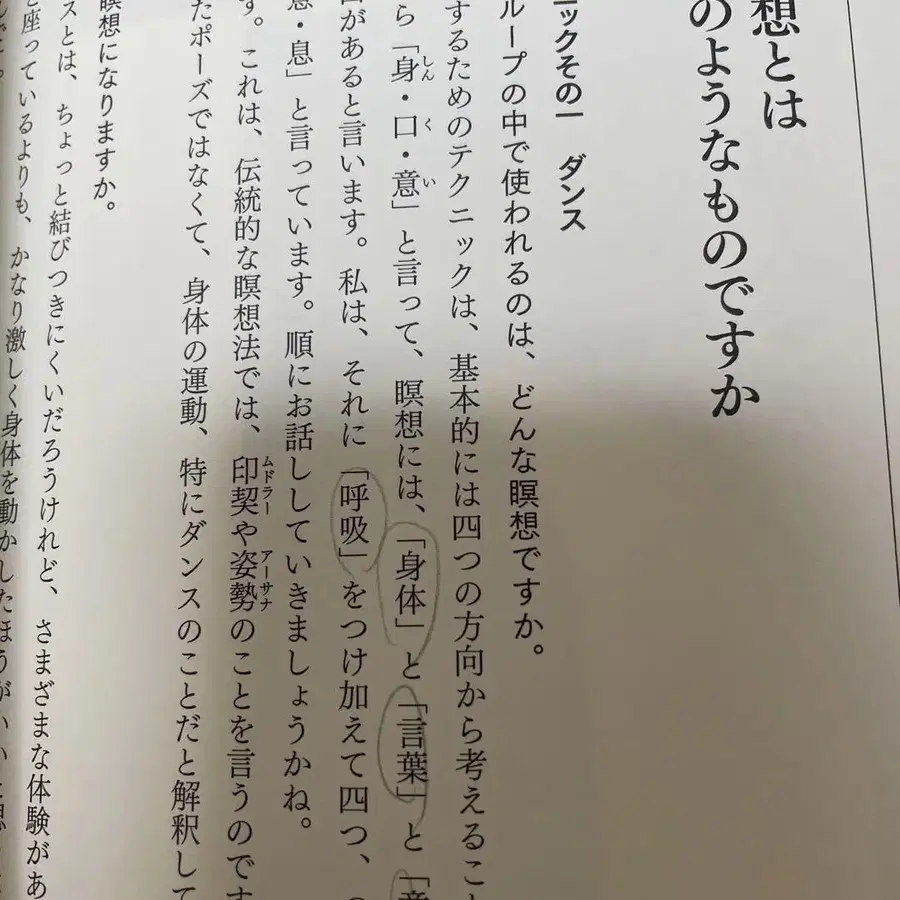 想とは
のようなものですか
ニックその一　ダンス
ループの中で使われるのは、どんな瞑想ですか。
するためのテクニックは、基本的には四つの方向から考えるこ
ら「身・口・意」と言って、瞑想には、「身体」と「言葉」と「意
があると言います。私は、それに「呼吸」をつけ加えて四つ、
意・息」と言っています。順にお話ししていきましょうかね。
す。これは、伝統的な瞑想法では、印契や姿勢のことを言うのです
たポーズではなくて、身体の運動、特にダンスのことだと解釈して
瞑想になりますか。
スとは、ちょっと結びつきにくいだろうけれど、さまざまな体験があ
と座っているよりも、かなり激しく身体を動かしたほうがいいと思